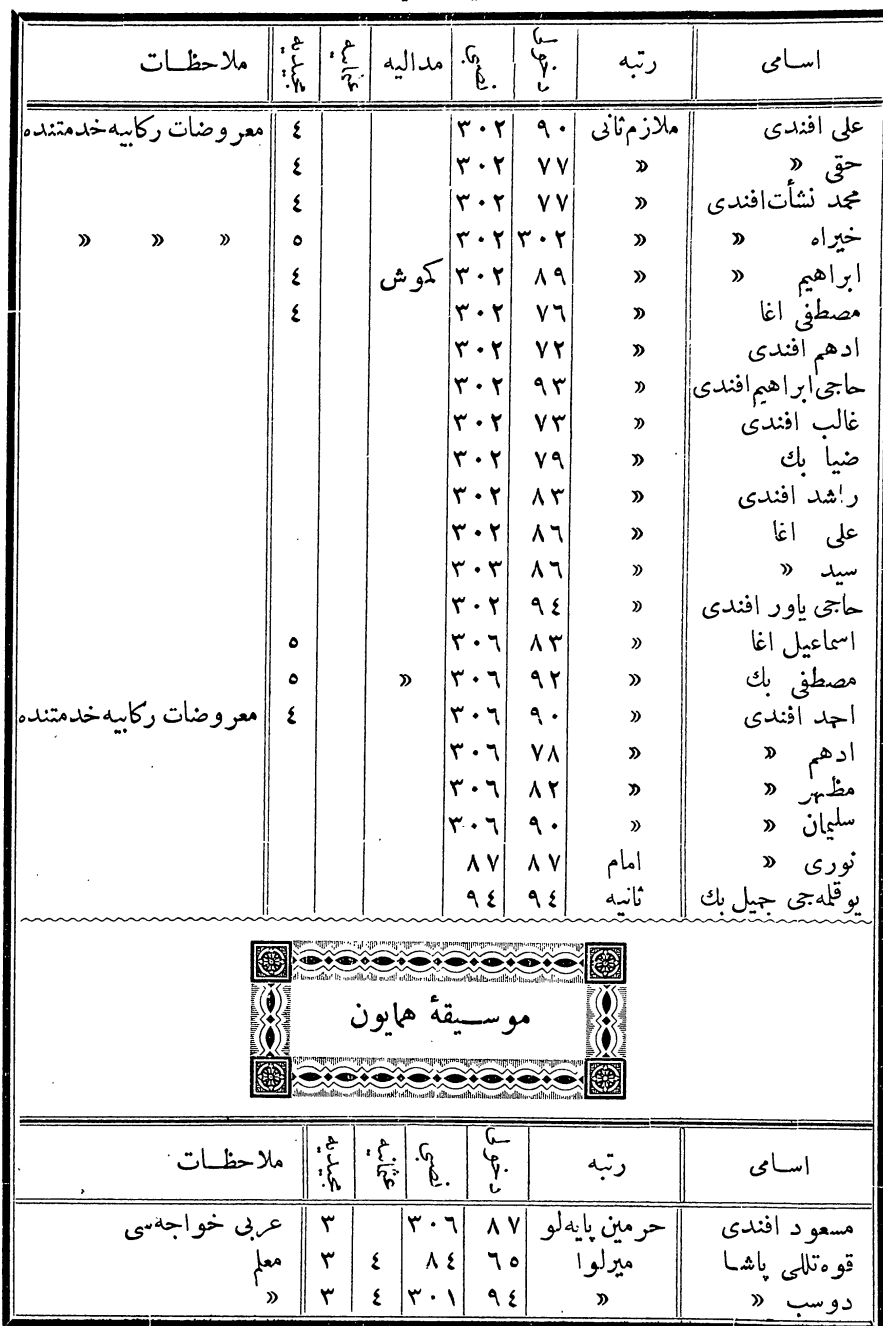 اسامی رتبه دخولی نصبی مدالیه عثمانیه مجیدیه ملاحظات
علی افندی ملازم ثانی ٩٠ ٣٠٢ ٤ معروضات ركابیه خدمتنده
حقی » » ٧٧ ٣٠٢ ٤
محمد نشأت افندی » ٧٧ ٣٠٢ ٤
خیراه » » ٣٠٢ ٣٠٢ ٥ » » »
ابراهیم » » ٨٩ ٣٠٢ كموش ٤
مصطفی اغا » ٧٦ ٣٠٢ ٤
ادهم افندی » ٧٢ ٣٠٢
حاجی ابراهیم افندی » ٩٣ ٣٠٢
غالب افندی » ٧٣ ٣٠٢
ضیا بك » ٧٩ ٣٠٢
راشد افندی » ٨٣ ٣٠٢
علی اغا » ٨٦ ٣٠٢
سید » » ٨٦ ٣٠٣
حاجی یاور افندی » ٩٤ ٣٠٢
اسماعیل اغا » ٨٣ ٣٠٦ ٥
مصطفی بك » ٩٢ ٣٠٦ » ٥
احمد افندی » ٩٠ ٣٠٦ ٤ معروضات ركابیه خدمتنده
ادهم » » ٧٨ ٣٠٦
مظهر » » ٨٢ ٣٠٦
سلیمان » » ٩٠ ٣٠٦
نوری » امام ٨٧ ٨٧
یوقلمه‌جی جمیل بك ثانیه ٩٤ ٩٤
موسیقهٔ همایون
اسامی رتبه دخولی نصبی عثمانیه مجیدیه ملاحظات
مسعود افندی حرمین پایه‌لو ٨٧ ٣٠٦ ٣ عربی خواجه‌سی
قوه‌تللی پاشا میرلوا ٦٥ ٨٤ ٤ ٣ معلم
دوسب » » ٩٤ ٣٠١ ٤ ٣ »